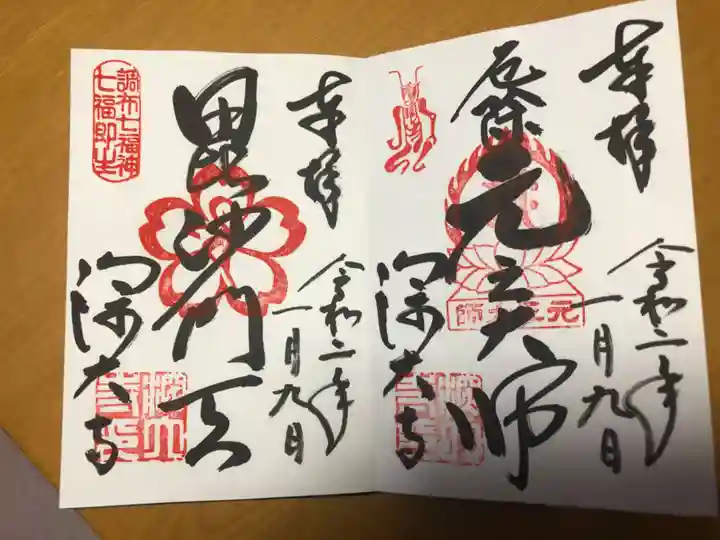 奉拝
厄除元三大師
令和二年
一月九日
深大寺
元三大師
奉拝
毘沙門天
令和二年
一月九日
深大寺
調布七福神
七福即生